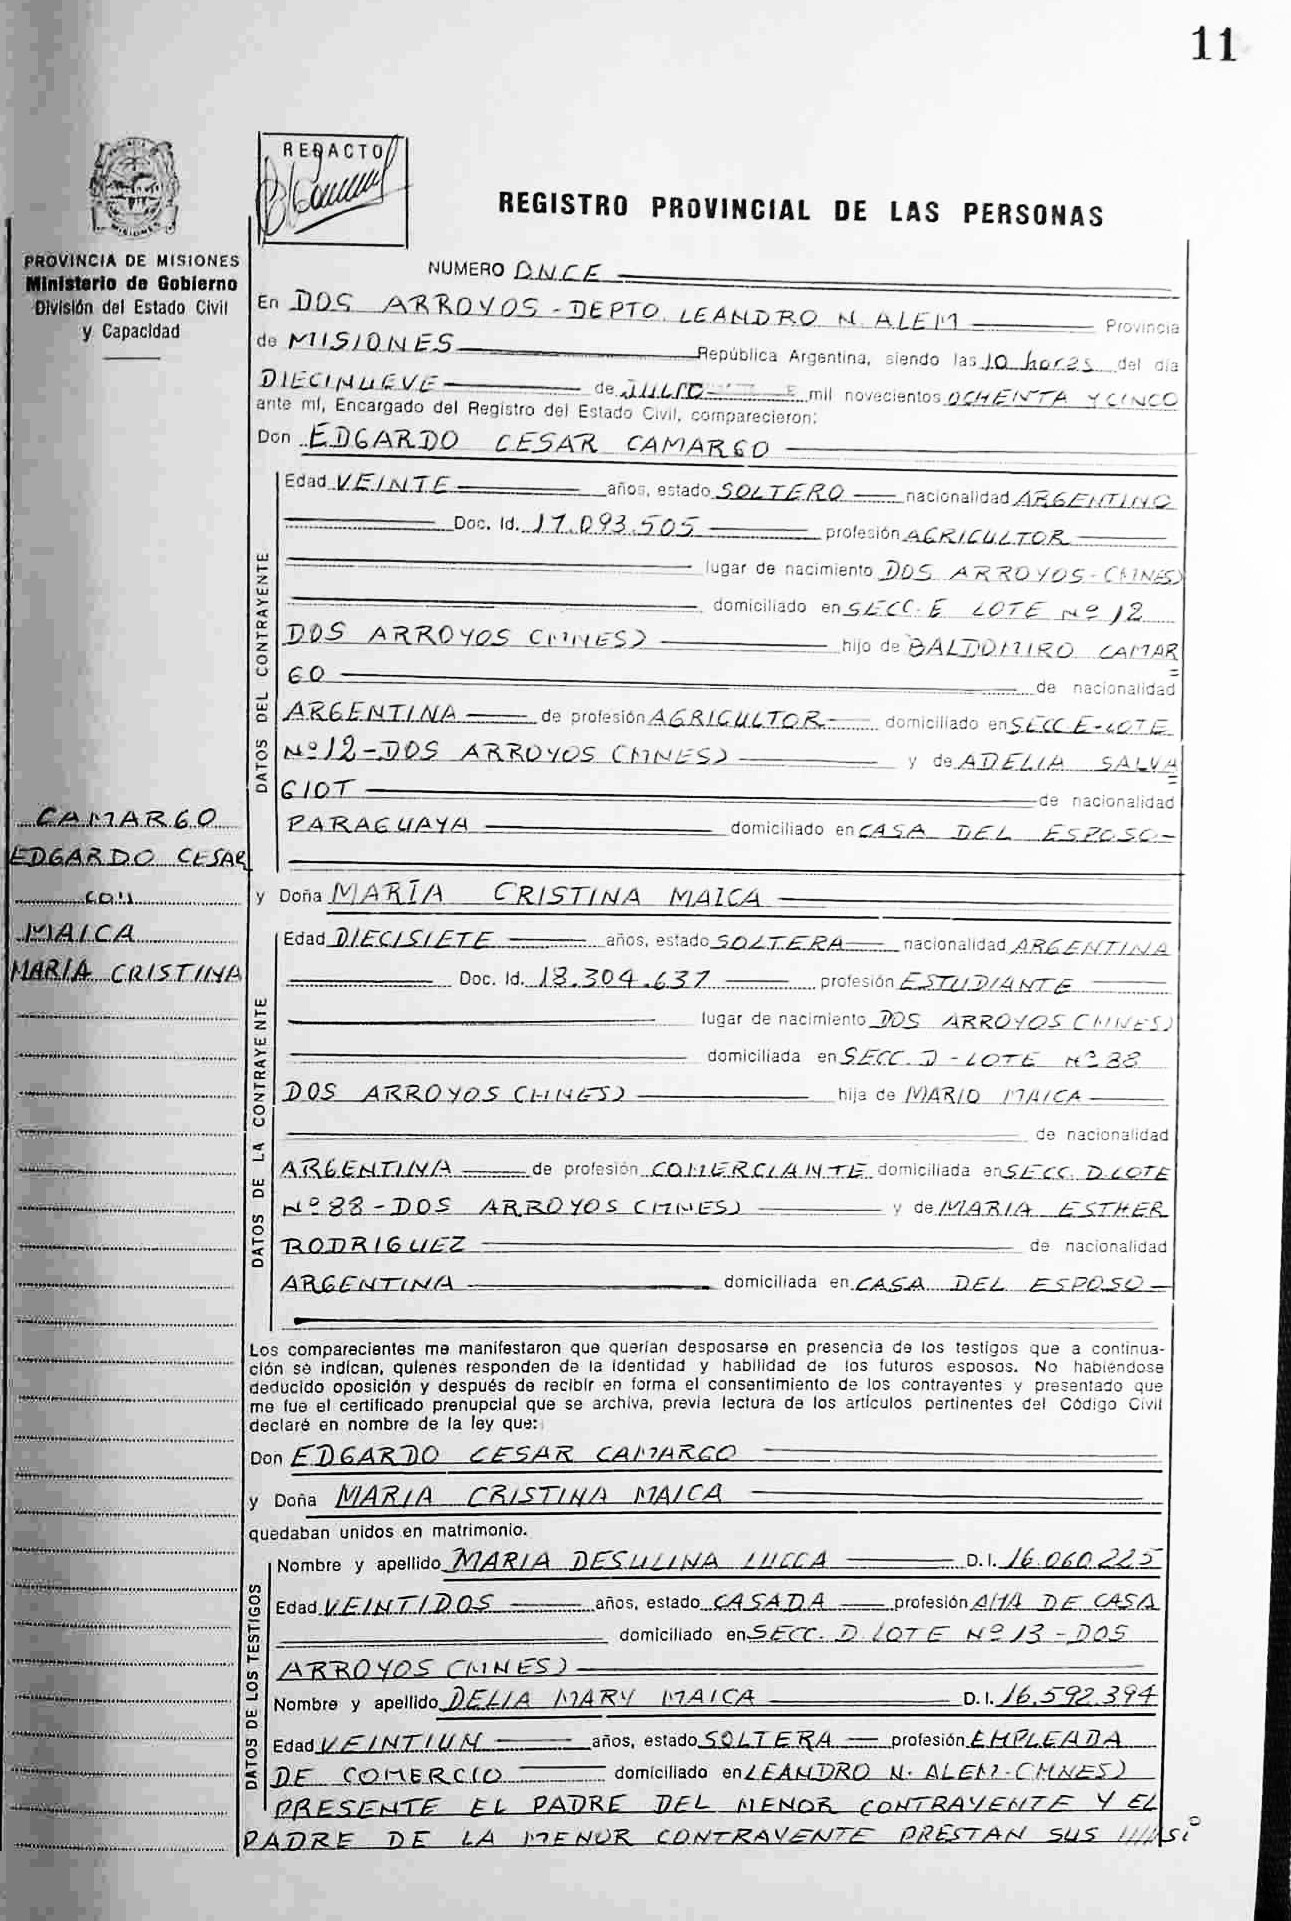 11
REDACTO
REGISTRO PROVINCIAL DE LAS PERSONAS
PROVINCIA DE MISIONES
Ministerio de Gobierno
División del Estado Civil
y Capacidad
NUMERO ONCE
En DOS ARROYOS - DEPTO. LEANDRO N. ALEM Provincia
de MISIONES República Argentina, siendo las 10 horas del día
DIECINUEVE de JULIO mil novecientos OCHENTA Y CINCO
ante mí, Encargado del Registro del Estado Civil, comparecieron:
Don EDGARDO CESAR CAMARGO
DATOS DEL CONTRAYENTE
Edad VEINTE años, estado SOLTERO nacionalidad ARGENTINO
Doc. Id. 17.093.505 profesión AGRICULTOR
lugar de nacimiento DOS ARROYOS-(MNES)
domiciliado en SECC. E LOTE Nº 12
DOS ARROYOS (MNES) hijo de BALDOMIRO CAMAR
=
GO de nacionalidad
ARGENTINA de profesión AGRICULTOR- domiciliado en SECC E-LOTE
Nº 12 - DOS ARROYOS (MNES) y de ADELIA SALVA
=
GIOT de nacionalidad
PARAGUAYA domiciliado en CASA DEL ESPOSO-
CAMARGO
EDGARDO CESAR
con
MAICA
MARIA CRISTINA
y Doña MARÍA CRISTINA MAICA
DATOS DE LA CONTRAYENTE
Edad DIECISIETE años, estado SOLTERA nacionalidad ARGENTINA
Doc. Id. 18.304.637 profesión ESTUDIANTE
lugar de nacimiento DOS ARROYOS (MNES)
domiciliada en SECC. D - LOTE Nº 88
DOS ARROYOS (MNES) hija de MARIO MAICA
de nacionalidad
ARGENTINA de profesión COMERCIANTE domiciliada en SECC. D LOTE
Nº 88 - DOS ARROYOS (MNES) y de MARIA ESTHER
RODRIGUEZ de nacionalidad
ARGENTINA domiciliada en CASA DEL ESPOSO-
Los comparecientes me manifestaron que querían desposarse en presencia de los testigos que a continua-
ción se indican, quienes responden de la identidad y habilidad de los futuros esposos. No habiéndose
deducido oposición y después de recibir en forma el consentimiento de los contrayentes y presentado que
me fue el certificado prenupcial que se archiva, previa lectura de los artículos pertinentes del Código Civil
declaré en nombre de la ley que:
Don EDGARDO CESAR CAMARGO
y Doña MARIA CRISTINA MAICA
quedaban unidos en matrimonio.
DATOS DE LOS TESTIGOS
Nombre y apellido MARIA DESULINA LUCCA D. I. 16.060.225
Edad VEINTIDOS años, estado CASADA profesión AMA DE CASA
domiciliado en SECC. D LOTE Nº 13 - DOS
ARROYOS (MNES)
Nombre y apellido DELIA MARY MAICA D. I. 16.592.394
Edad VEINTIUN años, estado SOLTERA profesión EMPLEADA
DE COMERCIO domiciliado en LEANDRO N. ALEM-(MNES)
PRESENTE EL PADRE DEL MENOR CONTRAYENTE Y EL
PADRE DE LA MENOR CONTRAYENTE PRESTAN SUS